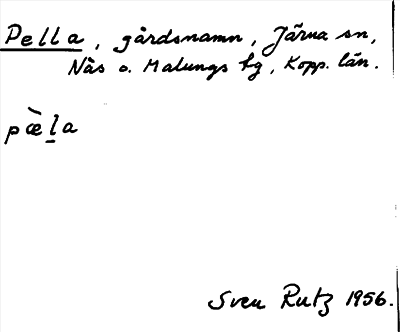 Pella, gårdsnamn, Järna sn,
Nås o. Malungs tg, Kopp. län.
pœ̀l̲a
Sven Rutz 1956.